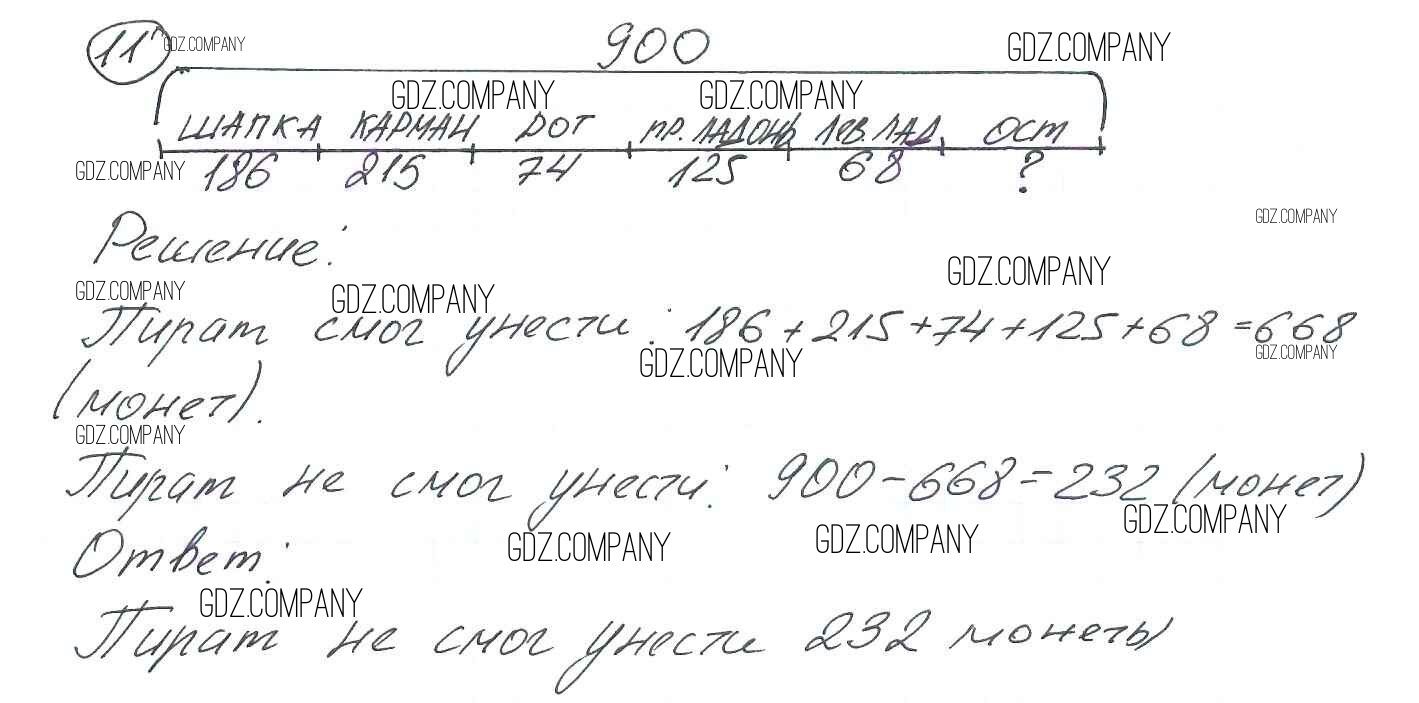 11 GDZ.COMPANY 900 GDZ.COMPANY
GDZ.COMPANY GDZ.COMPANY
ШАПКА КАРМАН РОТ ПР. ЛАДОНЬ ЛЕВ. ЛАД ОСТ
GDZ.COMPANY 186 215 74 125 68 ?
GDZ.COMPANY
Решение:
GDZ.COMPANY
GDZ.COMPANY GDZ.COMPANY
Пират смог унести: 186+215+74+125+68=668
GDZ.COMPANY GDZ.COMPANY
(монет).
GDZ.COMPANY
Пират не смог унести: 900-668=232 (монет)
GDZ.COMPANY
GDZ.COMPANY GDZ.COMPANY
Ответ:
GDZ.COMPANY
Пират не смог унести 232 монеты